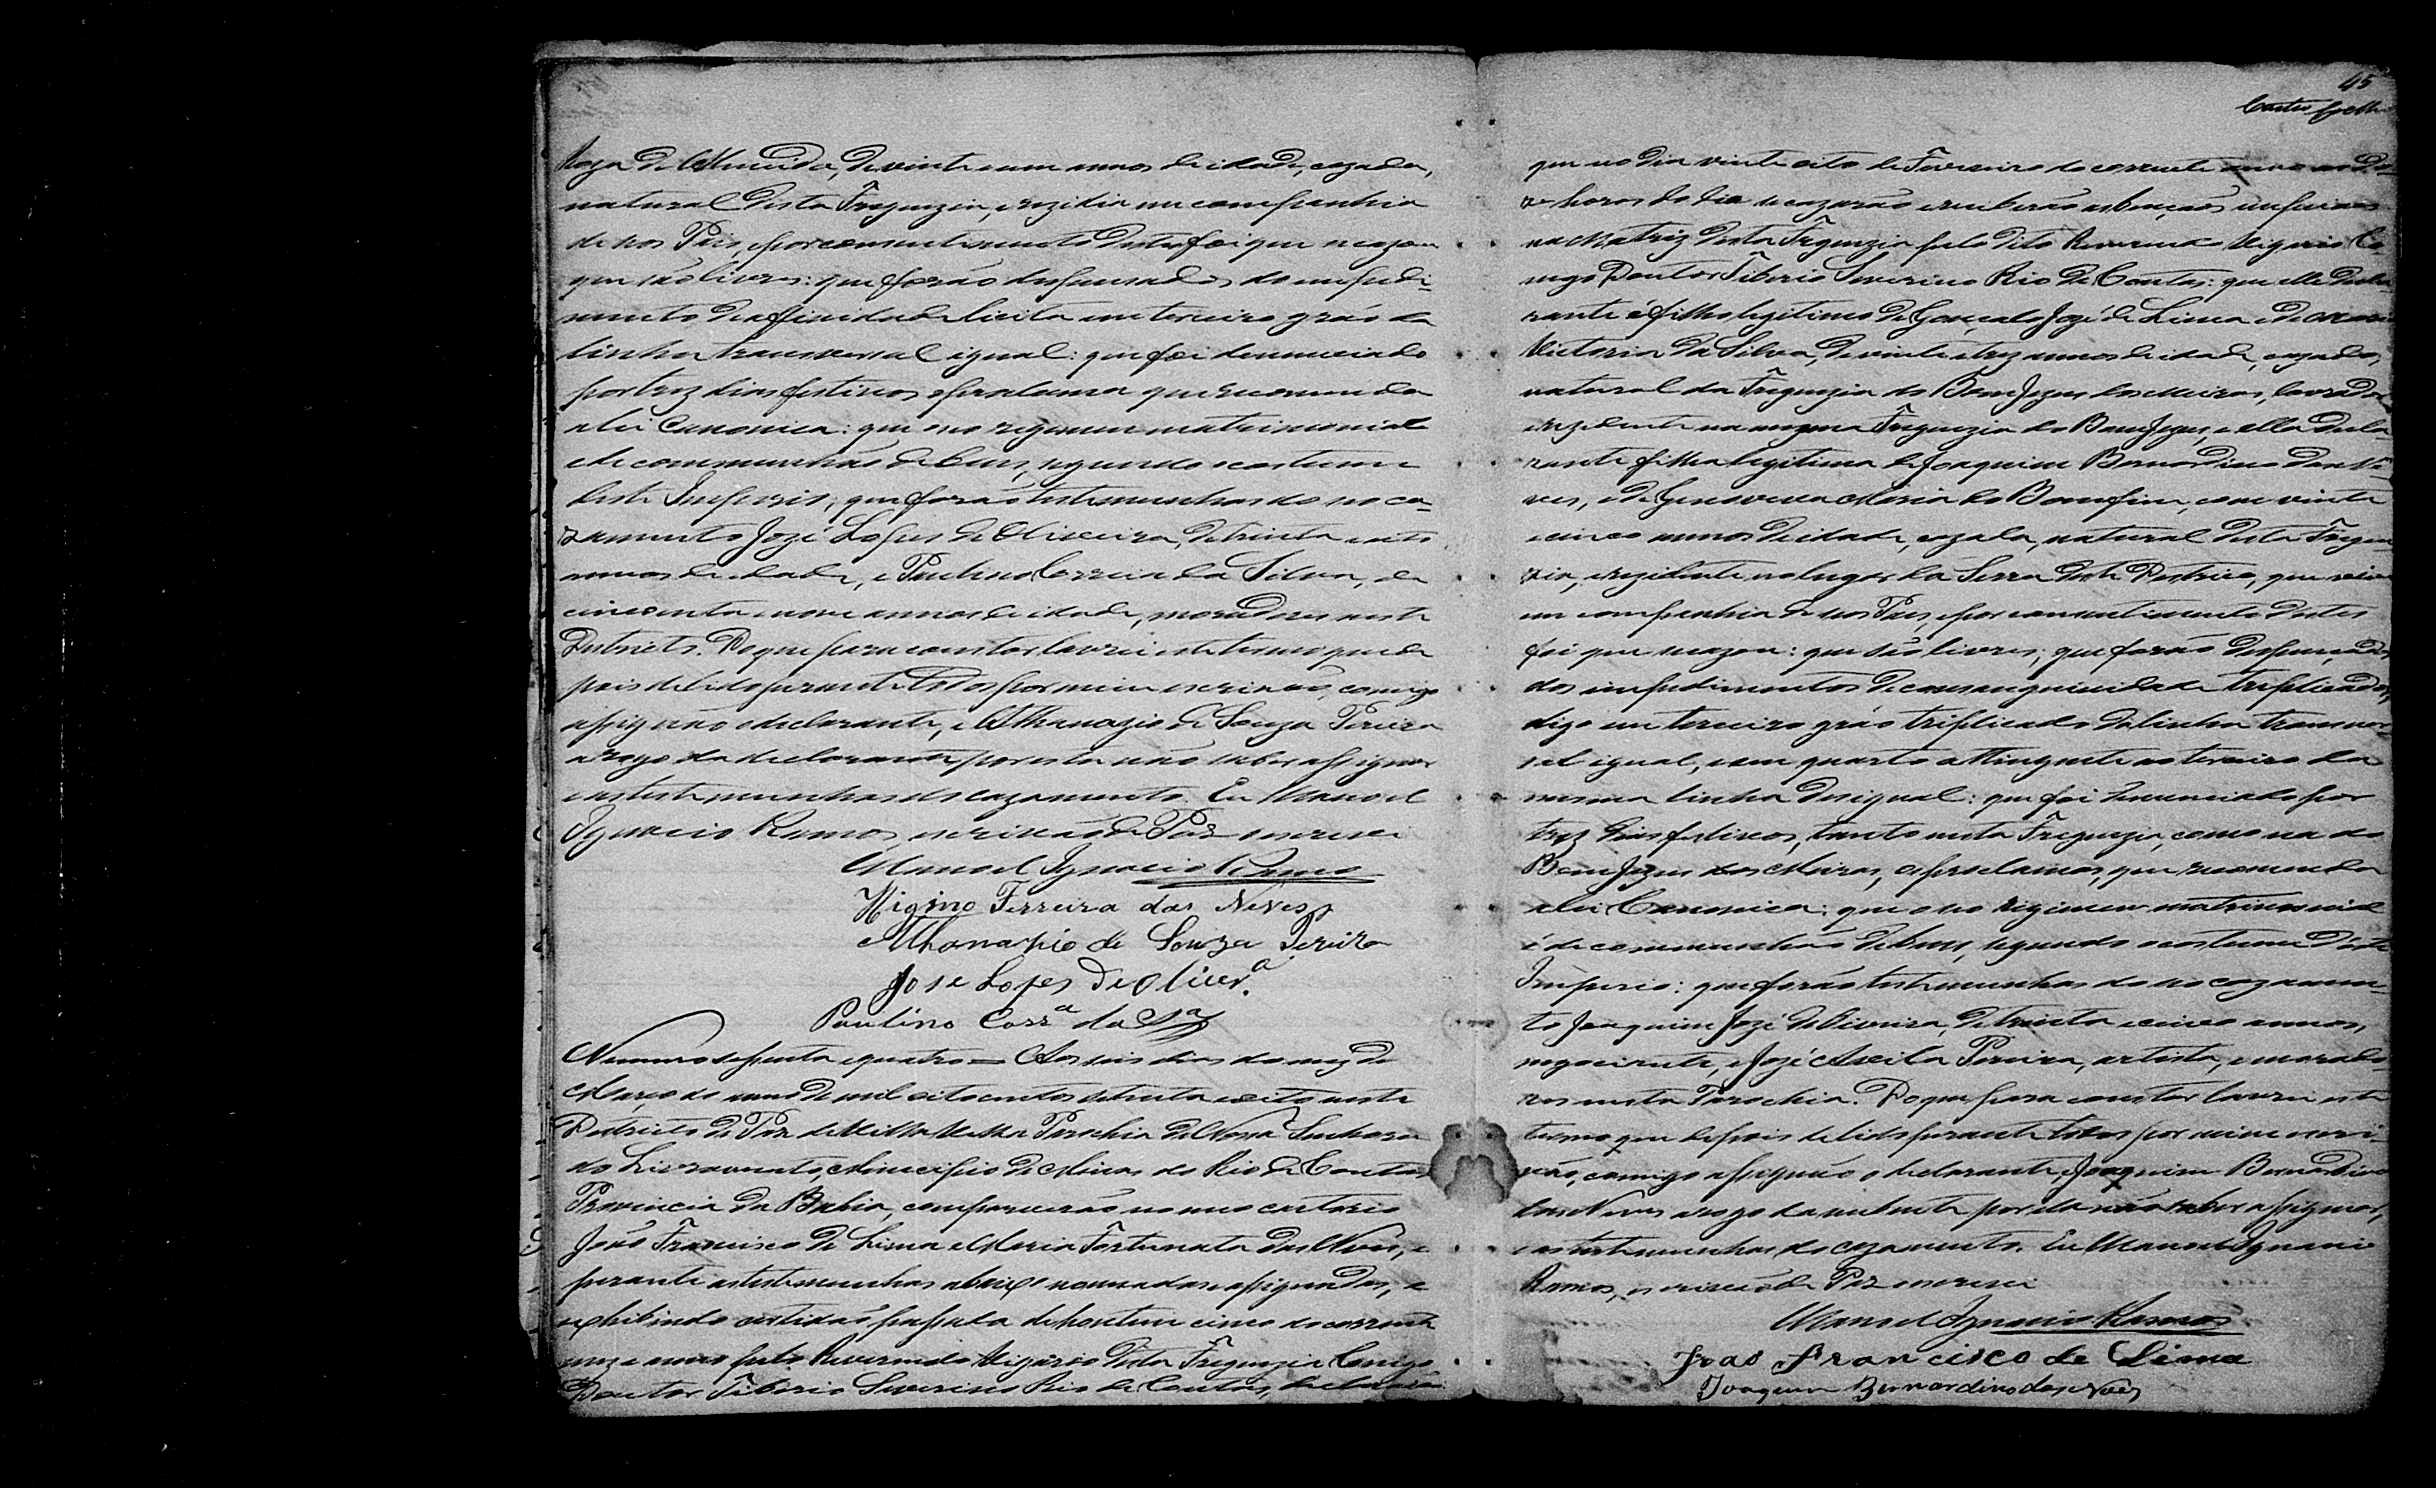 Roza de Almeida, de vinte e um annos de idade, cazada,
natural desta Freguezia, e rezidia em companhia
de seos Pais, e por consentimento destes foi que se cazou
que são livres: que forão dispensados do impedi-
mento de affinidade licita em terceiro gráo da
linha transversal igual: que foi denunciado
por trez dias festivos e proclama que recommenda
a lei Canonica: que o seo regimen matrimonial
é de communhão de bens, segundo o costume
deste Imperio; que forão testemunhas do seo ca-
zamento José Lopes de Oliveira, de trinta e oito
annos de idade, e Paulino Correia da Silva, de
cincoenta e nove annos de idade, moradores neste
Districto. Do que para constar lavrei este termo que de
pois de lido perante todos por mim escrivão, comigo
assignão o declarante, e Athanazio de Souza Pereira
a rogo da declarante por esta não saber assignar
e as testemunhas do cazamento. Eu Manoel
Ignacio Ramos, escrivão de Paz escrevi
Manoel Ignacio Ramos
Higino Ferreira das Neves
Athanasio de Souza Pereira
Jose Lopes de Oliver.ª
Paulino Corr.ª da S.ª
Numero setenta e quatro = Aos seis dias do mez de
Março do anno de mil oitocentos setenta e oito neste
Districto de Paz da Villa Velha Parochia de Nossa Senhora
do Livramento, Municipio de Minas do Rio de Contas
Provincia da Bahia, comparecerão no meo cartorio
João Francisco de Lima e Maria Fortunata das Neves, e
perante as testemunhas abaixo nomeadas e assignadas, e
exhibindo certidão passada de hontem cinco do corrente
mez e anno pelo Reverendo Vigario desta Freguezia Conego
Doutor Tiberio Severino Rio de Contas, declararão
45
que no dia vinte oito de Fevereiro do corrente anno as do-
ze horas do dia se cazarão e receberão as bençãos nupciaes
na Matriz desta Freguezia pelo dito Reverendo Vigario Co-
nego Doutor Tiberio Severino Rio de Contas: que elle decla-
rante é filho legitimo de Gonçalo José de Lima e de
Victoria da Silva, de vinte e trez annos de idade, cazado,
natural da Freguezia do Bom Jezus dos Meiras, lavrador
e rezidente na mesma Freguezia do Bom Jezus, e ella decla-
rante filha legitima de Joaquim Bernardino das Ne-
ves, e de Genoveva Maria do Bomfim, com vinte
e cinco annos de idade, cazada, natural desta Fregue-
zia, e rezidente no lugar da Serra deste Destrico, que vivia
em companhia de seos Pais, e por consentimento destes
foi que se cazou: que são livres; que forão dispensados
dos impedimentos de consanguinidade triplicados,
digo em terceiro gráo triplicado da linha transver-
sal igual, e em quarto attingente ao terceiro da
mesma linha desigual: que foi denunciado por
trez dias festivos, tanto nesta Freguezia, como na do
Bom Jezus dos Meiras, e proclamas, que recommenda
a lei Canonica; que o seo regimen matrimonial
é de communhão de bens, segundo o costume deste
Imperio: que forão testemunhas do seo cazamen-
to Joaquim José de Oliveira, de trinta e cinco annos,
negociante, e José Pereira, artista, e morado-
res nesta Parochia. Do que para constar lavrei este
termo que depois de lido perante todos por mim escri-
vão, comigo assignão o declarante, Joaquim Bernardino
das Neves a rogo da nubente por ella não saber assignar,
e as testemunhas do cazamento. Eu Manoel Ignacio
Ramos, escrivão de Paz escrevi
Manoel Ignacio Ramos
Joao Francisco de Lima
Joaquim Bernardino das Neves